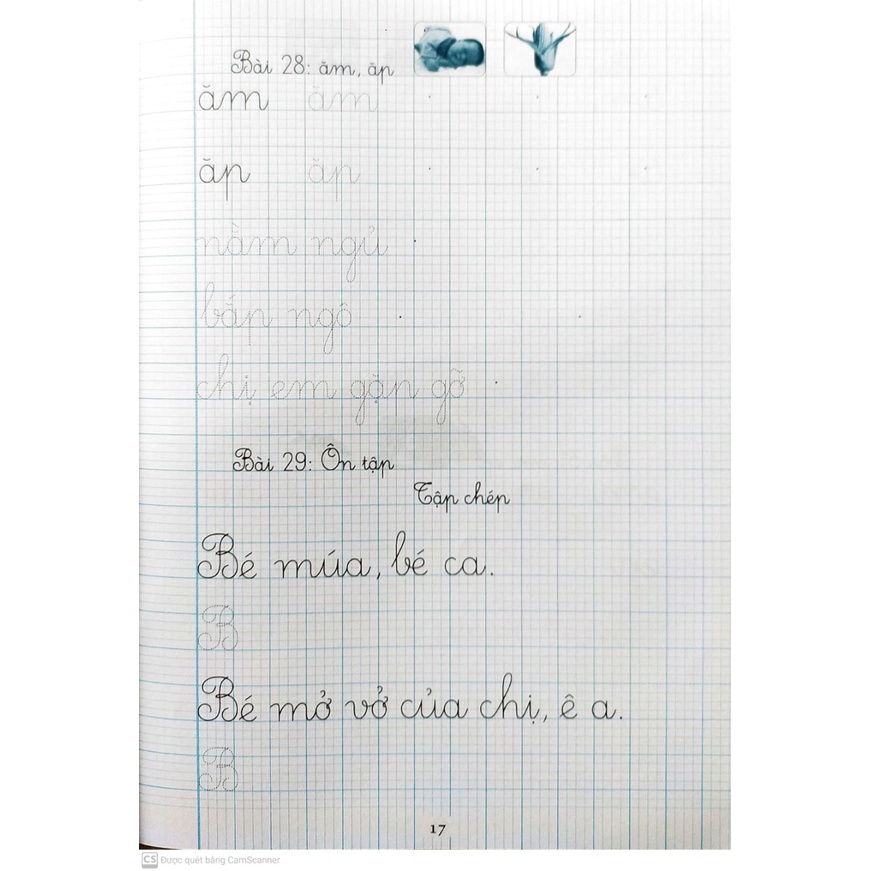 Bài 28: ăm, ăp
ăm ăm
ăp ăp
nằm ngủ
bắp ngô
chị em gặp gỡ
Bài 29: Ôn tập
Tập chép
Bé múa, bé ca.
B
Bé mở vở của chị, ê a.
B
17
CS Được quét bằng CamScanner